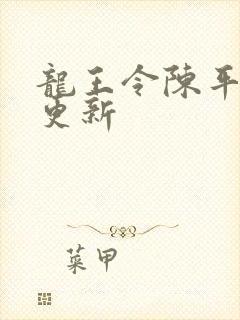 龍王令陳平
更新
菜甲